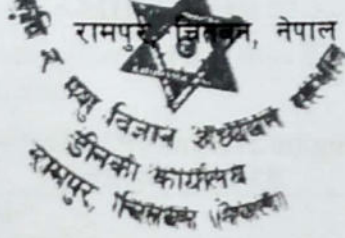 रामपुर, चितवन, नेपाल
पशु विज्ञान अध्ययन संस्थान
डीनको कार्यालय
रामपुर, चितवन